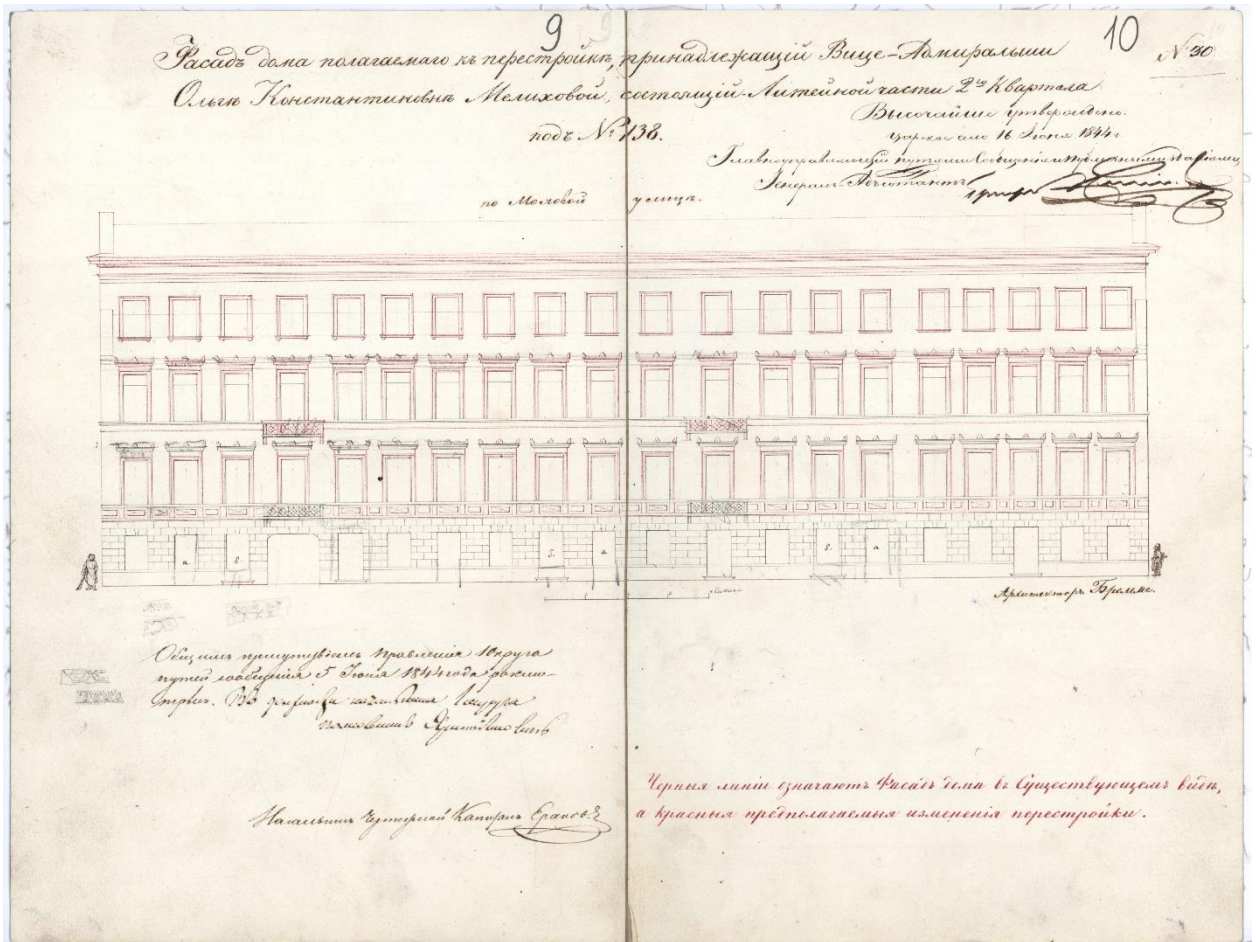 9
10
№ 30
Фасадъ дома полагаемаго къ перестройкѣ, принадлежащій Вице-Адмиральши
Ольгѣ Константиновнѣ Мелиховой, состоящій Литейной части 2го Квартала
подъ № 138.
Высочайше утверждено.
Царское село 16 Іюня 1844 г.
Главноуправляющій путями Сообщенія и публичными зданіями,
Генералъ-Адъютантъ графъ
по Моховой улицѣ.
а
б
б.
а
б.
а
Архитекторъ
Общимъ присутствіемъ Правленія 1 Округа
путей сообщенія 5 Іюня 1844 года разсмо-
трѣнъ. Въ
Начальникъ Чертежной Капитанъ Ераковъ
Черныя линіи означаютъ Фасадъ дома въ Существующемъ видѣ,
а красныя предполагаемыя измененія перестройки.